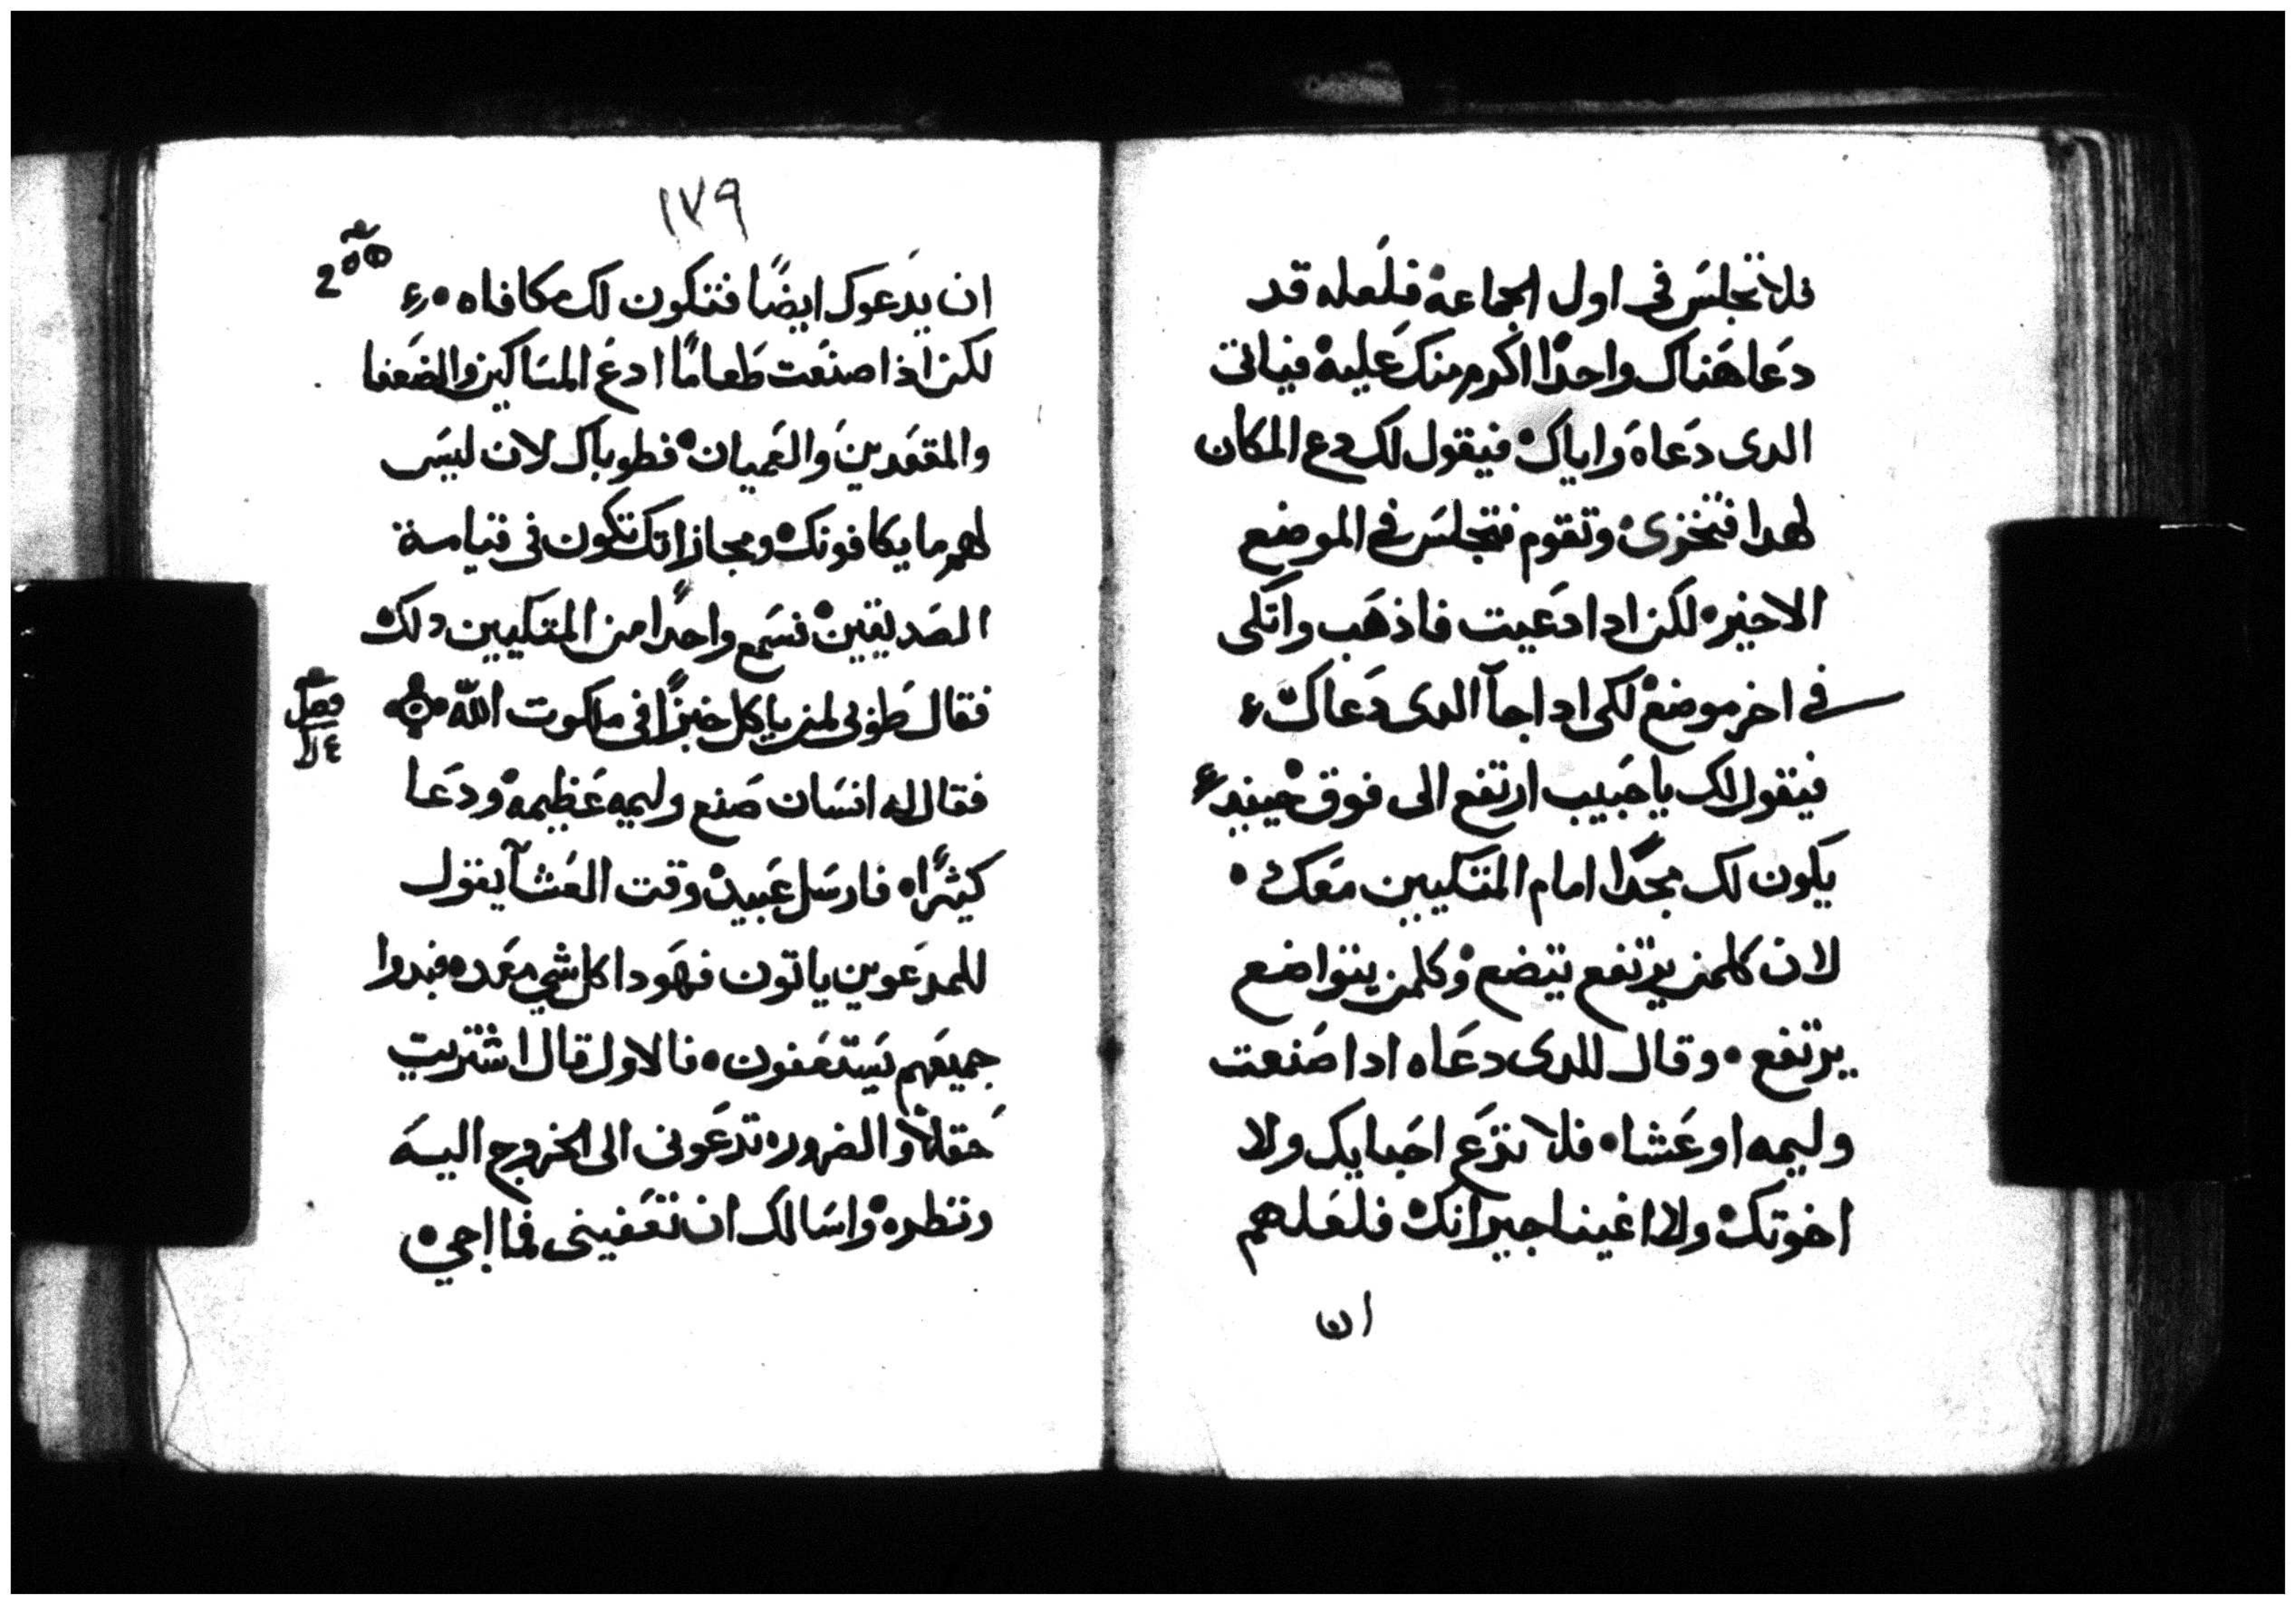 فلا تجلس في اول الجماعة فلعله قد
دعا هناك واحدًا اكرم منك عليه فياتى
الدى دعاه واياك فيقول لك دع المكان
لهدا فتخزى وتقوم فتجلس في الموضع
الاخير لكن ادا دعيت فاذهب واتكى
في اخر موضع لكى ادا جآ الدى دعاك
فيقول لك يا حبيب ارتفع الى فوق حينيد
يكون لك مجدًا امام المتكيين معك
لان كلمن يرتفع يتضع وكلمن يتواضع
يرتفع وقال للدى دعاه ادا صنعت
وليمه او عشا فلا تدع احبايك ولا
اخوتك ولا اغينا جيرانك فلعلهم
ان
١٧٩
ان يدعوك ايضًا فتكون لك مكافاه
لكن اذا صنعت طعامًا ادع المساكين والضعفا
والمقعدين والعميان فطوباك لان ليس
لهم ما يكافونك ومجازاتك تكون في قيامة
الصديقين فسمع واحدًا من المتكيين دلك
فقال طوبى لمن ياكل خبزًا فى ملكوت الله
فصل
فقال له انسان صنع وليمه عظيمه ودعا
كثيرًا فارسل عبيده وقت العشآ يقول
للمدعوين ياتون فهودا كل شي معده فبدوا
جميعهم يستعفون فالاول قال اشتريت
حقلاً والضروره تدعونى الى الخروج اليه
ونظره واسالك ان تعفينى فما اجي